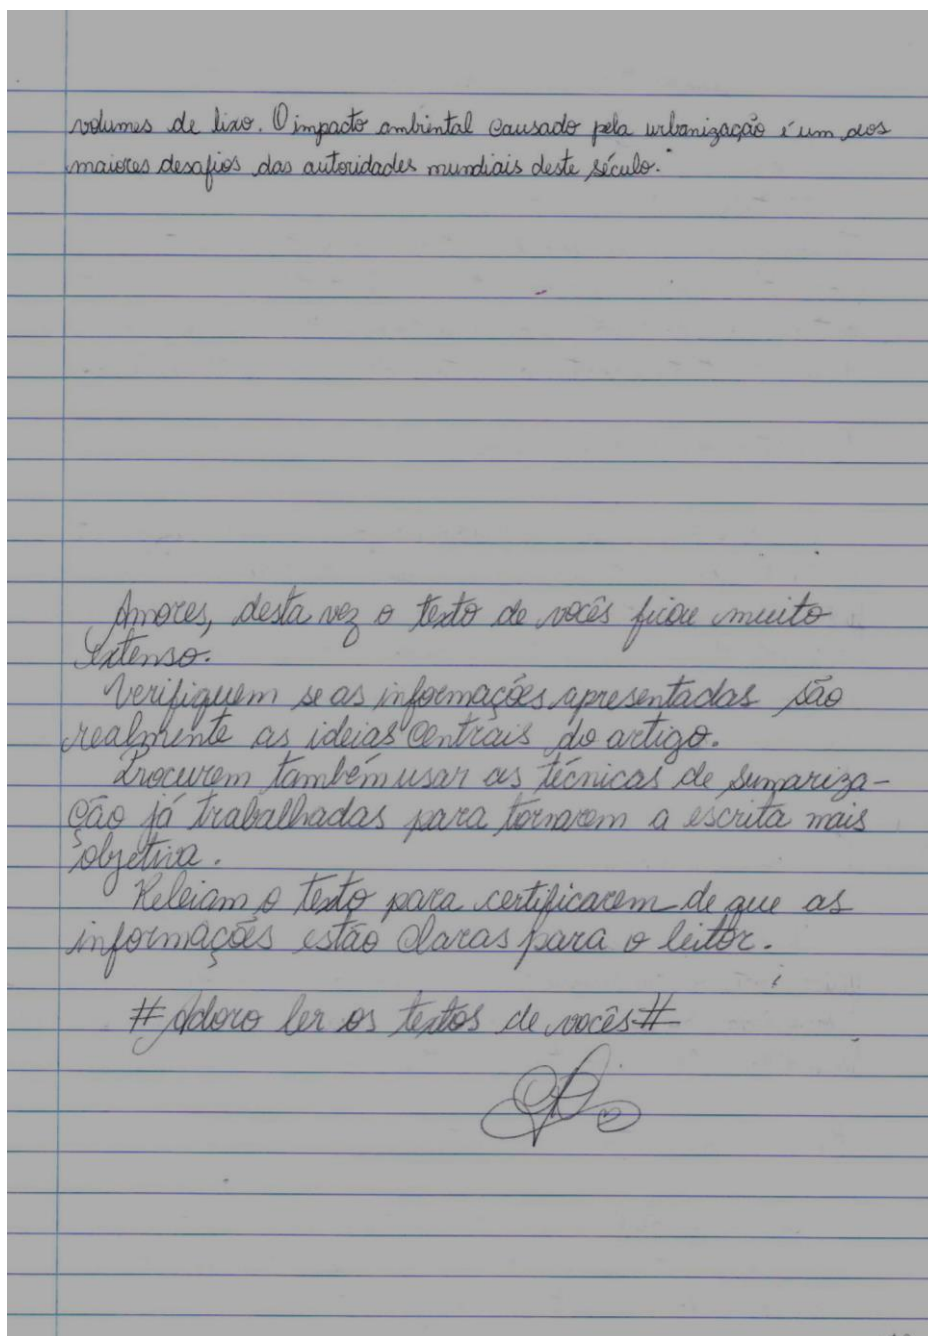 volumes de lixo. O impacto ambiental causado pela urbanização é um dos
maiores desafios das autoridades mundiais deste século."
Amores, desta vez o texto de vocês ficou muito
extenso.
Verifiquem se as informações apresentadas são
realmente as ideias centrais do artigo.
Procurem também usar as técnicas de sumariza-
ção já trabalhadas para tornarem a escrita mais
objetiva.
Releiam o texto para certificarem de que as
informações estão claras para o leitor.
# Adoro ler os textos de vocês #